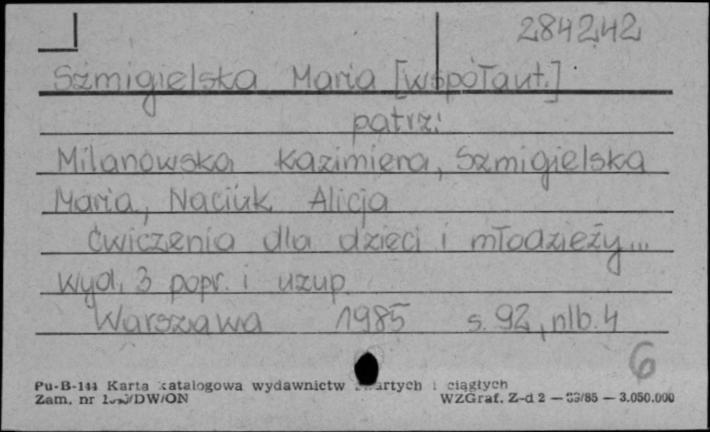 284242
Szmigielska Maria [współaut.]
patrz:
Milanowska Kazimiera, Szmigielska
Maria, Naciuk Alicja
Ćwiczenia dla dzieci i młodzieży...
wyd. 3 popr. i uzup.
Warszawa 1985 s. 92, nlb. 4
6
Pu-B-144 Karta katalogowa wydawnictw zwartych i ciągłych
Zam. nr /DW/ON WZGraf. Z-d 2 — /85 — 3.050.000